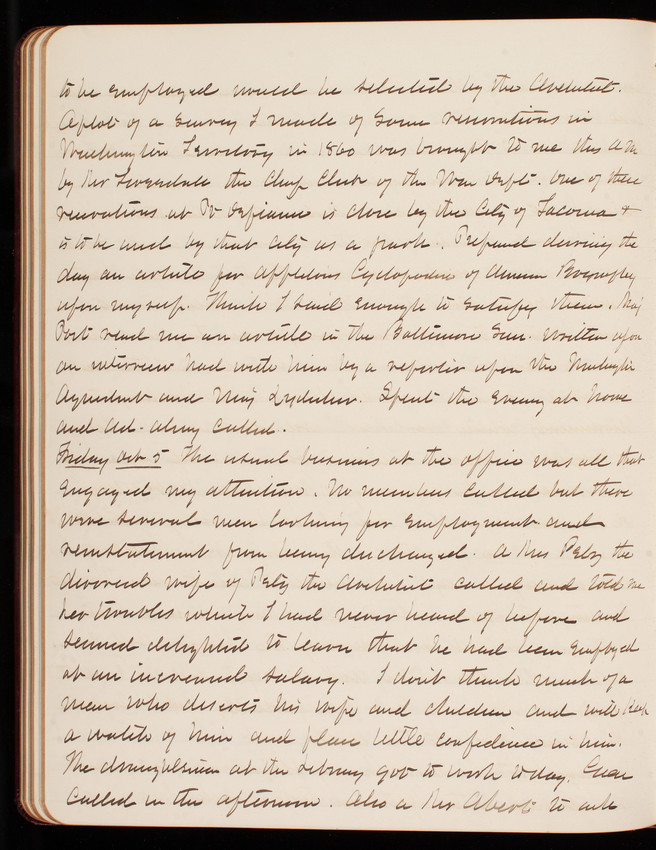 to be employed would be selected by the Architect.
A plot of a survey I made of some reservations in
Washington Territory in 1860 was brought to me this AM
by Mr Tweedale the Chief Clerk of the War Dept. One of these
reservations at Pt Defiance is close by the City of Tacoma +
is to be used by that city as a park. Prepared during the
day an article for Appletons Cyclopedia of American Biography
upon myself. Think I said enough to satisfy them. Maj
Post read me an article in the Baltimore Sun written upon
an interview had with him by a reporter upon the Washington
Aqueduct and Maj Lydecker. Spent the evening at home
and called.
Friday Oct 5 The usual business at the office was all that
engaged my attention. No members called but there
were several men looking for employment and
reinstatement from being discharged. A Mrs Pelz the
divorced wife of Pelz the Architect called and told me
her troubles which I had never heard of before and
seemed delighted to learn that he had been employed
at an increased salary. I don't think much of a
man who deserts his wife and children and will keep
a watch of him and place little confidence in him.
The draughtsmen at the Library got to work today. Green
called in the afternoon. Also a Mr to ask